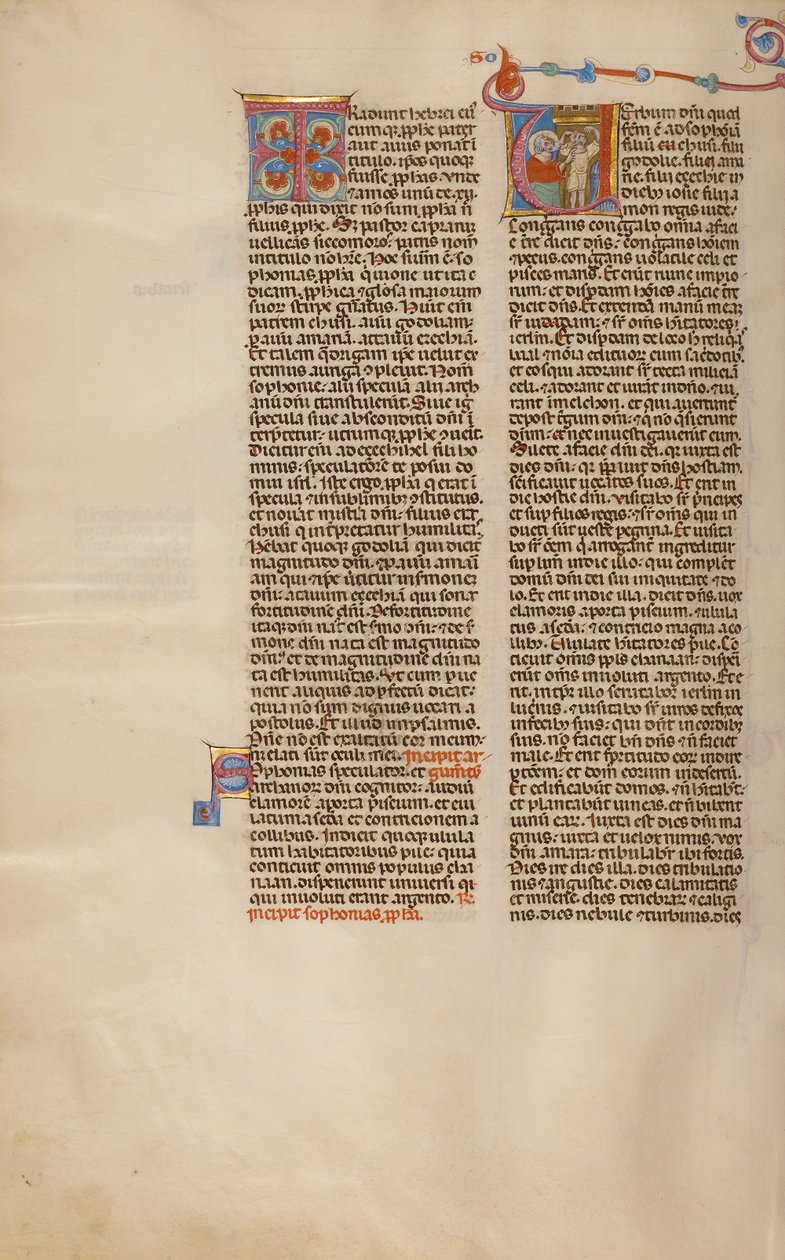 SO
Tradunt hebrei cui
cumq; pphe pater
aut auus ponat i
titulo. ipos quoq;
fuisse pphas. unde
⁊ amos unu de. xij.
pphis qui dixit no sum ppha n̄
filius pphe. S; pastor capraru
uellicās siccomoros. patris nom
in titulo no hr̄e. Hoc si uim ē. so
phonias ppha qui one ut ita e
dicam. pphica ⁊ glosa maiorum
suor stirpe gn̄atus. Huit eni
patrem chusi. auū godoliam.
p auū amariā. attauū ezechiā.
Et talem q̄drigam ipe uelut ex
tremus auriga ⁊pleuit. Nom
sophonie. alii speculā alii arch
anū dni transtulerūt. Siue ig
specula siue absconditū dni i
terp̄tetur. utrumq; pphe ⁊ueit.
Dicitur eni ad ezechihel fili ho
minis. speculatorē te posui do
mui isrl. Iste ergo ppha q erat i
specula ⁊ in sublimib; ⁊stitutus.
et nouāt mistia dni. filius erat
chusi q int̄pretatur humilitas
Hebat quoq; godoliā qui dicit
magnitudo dni. ⁊ p auū amari
am qui ⁊ ipe ūtitur in smonez
dni. atauum ezechiā qui sonat
fortitudinē dni. De fortitudine
itaq; dni nat est smo dni. ⁊ de s
mone dni nata est magnitudo
dni. et de magnitudine dni na
ta est humilitas. Ut cum p ue
nerit aliquis ad pfectū dicat.
quia no sum dignus uocari a
postolus. Et illud in psalmis.
Dn̄e no est exaltatū cor meum.
n̄ elati sūt oculi mei. Incipit ar
Sophonias speculator. et gumtū
archanor dni cognitor. audiū
clamorē a porta pisciuum. et eiu
latum a scda et contricionem a
collibus. Indicit quoq; ulula
tum habitatoribus pile. quia
conticuit omnis populus cha
naan. disperierunt uniuersi qi
qui inuoluti erant argento. R.
Incipit sophonias ppha.
Verbum dni quod
fcm̄ ē ad sophoniā
filiū chusi. filii
godolie. filii ama
rie. filii ezechie in
dieb; iosie filii a
mon regis iude.
Conggans conggabo omnia a faci
e tr̄e dicit dn̄s. conggans hoiem
⁊ pecus. conggans uolatile celi et
pisces maris. Et erūt ruine impio
rum. et disp̄dam hoies a facie tr̄e
dicit dn̄s. Et extendā manū meaz
sr iudam. ⁊ sr om̄s hitatores
ierlm. Et disp̄dam de loco h reliqas
baal ⁊ noīa edituor cum sacdotib;
et eos qui adorant sr tecta miliciā
celi. ⁊ adorant et iurāt in dno. ⁊ iu
rant i melchon. et qui auertunt
de post tgum dni. ⁊ q no q̄sierunt
dnm. ⁊ nec inuestigauerūt eum.
Silete a facie dni dei. qr iuxta est
dies dni. qr p̄pauit dn̄s hostiam.
scificauit uocatos suos. Et erit in
die hostie dni. uisitabo sr p̄ncipes
et sup filios regis. ⁊ sr om̄s qui in
duti sūt ueste pegrina. Et uisita
bo sr oēm q arrogant ingreditur
sup lim in die illo. qui complēt
domū dni dei sui iniquitate ⁊ do
lo. Et erit in die illa. dicit dn̄s. uox
clamoris a porta piscium. ⁊ ulula
tus a scda. ⁊ contricio magna a co
llib;. Ululate hitatores pile. Co
ticuit omis ppls chanaan. dispie
erūt om̄s inuoluti argento. Et e
rit. in tpr illo scrutabor ierlm in
lucernis. ⁊ uisitabo sr uiros defixos
in fecib; suis. qui dnt in cordib;
suis. no faciet bn̄ dn̄s ⁊ n̄ faciet
male. Et erit fortitudo eor in dire
ptōem. et dom eorum in desertū.
Et edificabūt domos. ⁊ n̄ hitabt.
et plantabūt uineas. et n̄ bibent
uinū ear. Iuxta est dies dni ma
gnus. iuxta et uelox nimis. vox
dni amara. tribulabr ibi fortis.
Dies ire dies illa. dies tribulatio
nis ⁊ angustie. dies calamitatis
et miserie. dies tenebrar ⁊ caligi
nis. dies nebule ⁊ turbinis. dies